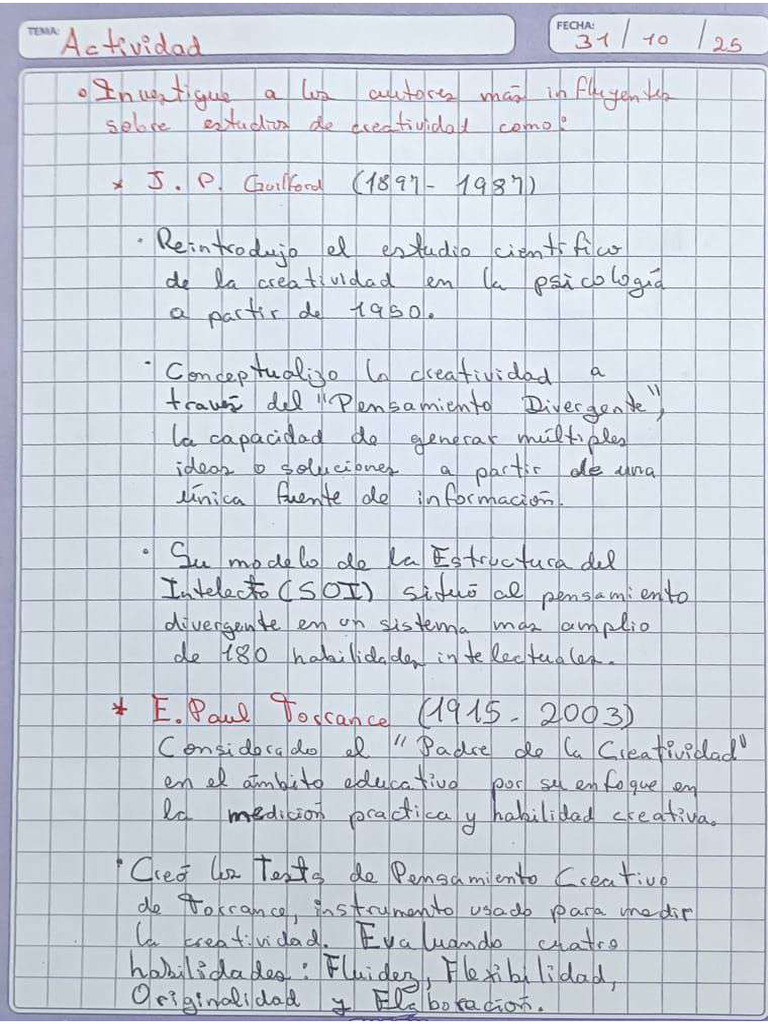 TEMA: Actividad
FECHA: 31 / 10 / 25
• Investigue a los autores más influyentes
sobre estudios de creatividad como:
* J. P. Guilford (1897 - 1987)
• Reintrodujo el estudio científico
de la creatividad en la psicología
a partir de 1950.
• Conceptualizo la creatividad a
través del "Pensamiento Divergente",
la capacidad de generar múltiples
ideas o soluciones a partir de una
única fuente de información.
• Su modelo de la Estructura del
Intelecto (SOI) situó al pensamiento
divergente en un sistema mas amplio
de 180 habilidades intelectuales.
* E. Paul Torrance (1915 - 2003)
Considerado el "Padre de la Creatividad"
en el ámbito educativo por su enfoque en
la medición practica y habilidad creativa.
• Creó los Tests de Pensamiento Creativo
de Torrance, instrumento usado para medir
la creatividad. Evaluando cuatro
habilidades: Fluidez, Flexibilidad,
Originalidad y Elaboración.